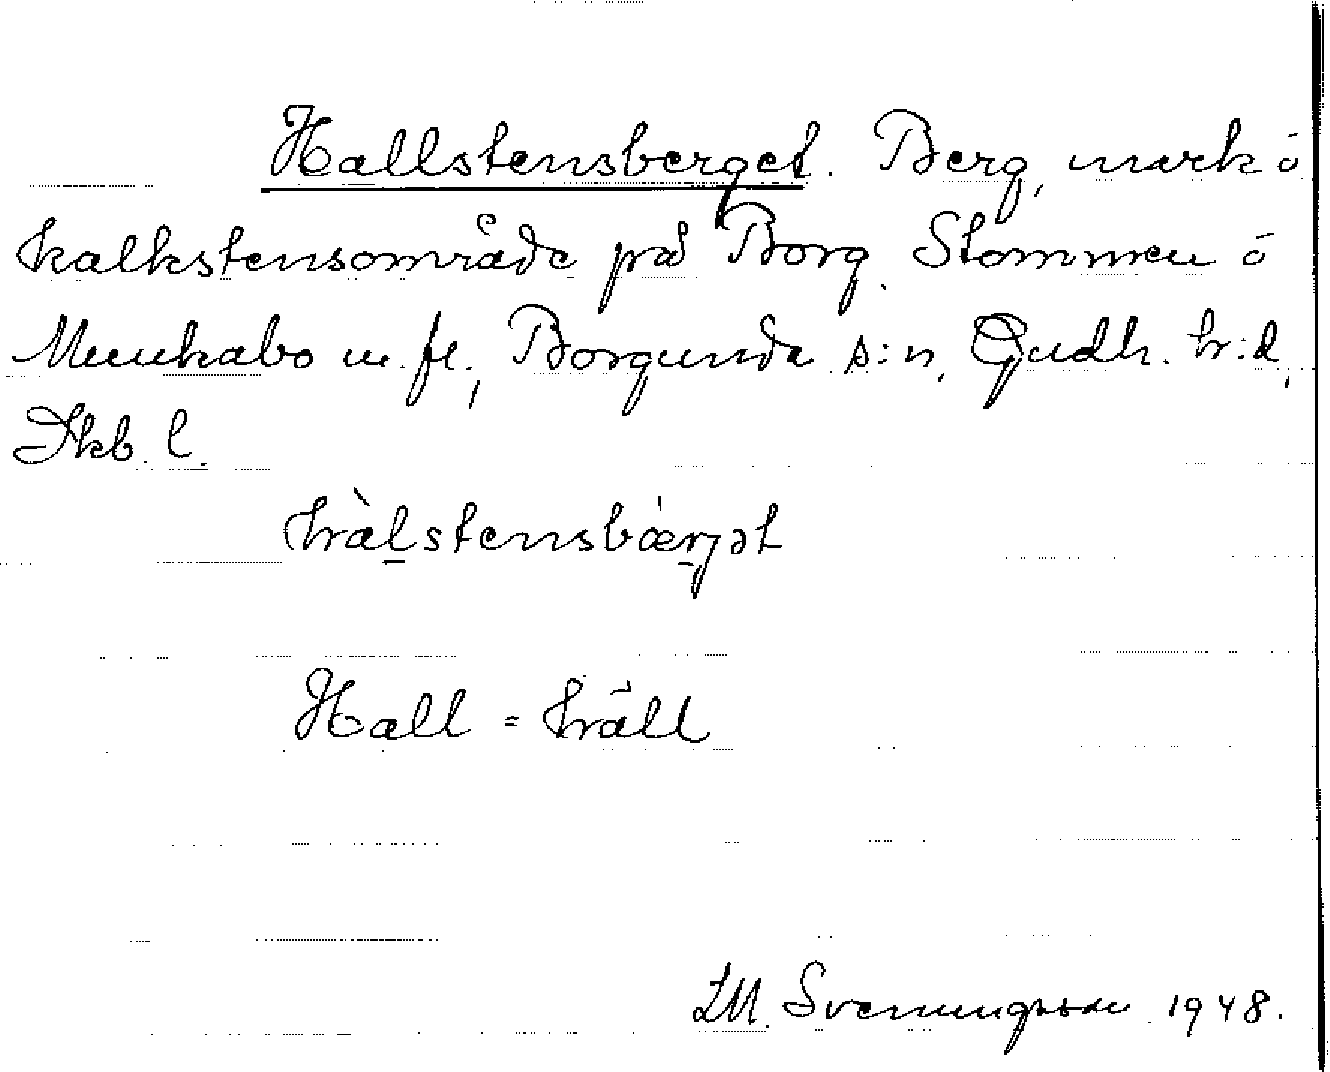 Hallstensberget. Berg, mark ó
kalkstensområde på Borg. Stommen ó
Munkabo m. fl., Borgunda s:n, Gudh. hr:d,
Skb. l.
hàlstensbærjət
Hall = häll
LM. Svenungsson 1948.